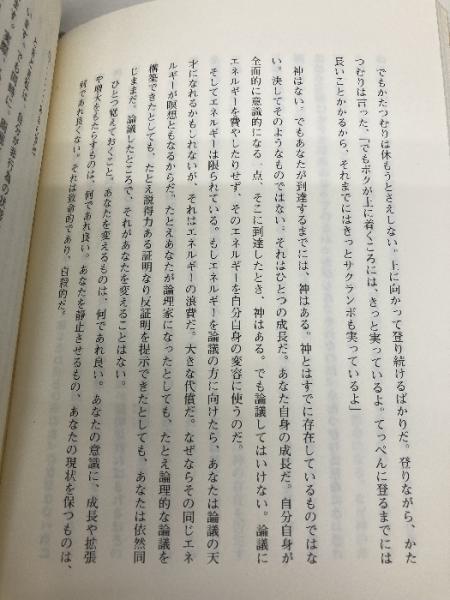 でもかたつむりは休もうとさえしない。上に向かって登り続けるばかりだ。登りながら、かた
つむりは言った、「でもボクが上に着くころには、きっと実っているよ。てっぺんに登るまでには
長いことかかるから、それまでにはきっとサクランボも実っているよ」
神はない。でもあなたが到達するまでには、神はある。神とはすでに存在しているものではな
い。決してそのようなものではない。それはひとつの成長だ。あなた自身の成長だ。自分自身が
全面的に意識的になる一点、そこに到達したとき、神はある。でも論議してはいけない。論議に
エネルギーを費やしたりせず、そのエネルギーを自分自身の変容に使うのだ。
そしてエネルギーは限られている。もしエネルギーを論議の方に向けたら、あなたは論議の天
才になれるかもしれないが、それはエネルギーの浪費だ。大きな代償だ。なぜならその同じエネ
ルギーが瞑想ともなるからだ。たとえあなたが論理家になったとしても、たとえ論理的な論議を
構築できたとしても、たとえ説得力ある証明なり反証明を提示できたとしても、あなたは依然同
じままだ。論議したところで、それがあなたを変えることはない。
ひとつ覚えておくこと。あなたを変えるものは、何であれ良い。あなたの意識に、成長や拡張
や増大をもたらすものは、何であれ良い。あなたを静止させるもの、あなたの現状を保つものは、
何であれ良くない。それは致命的であり、自殺的だ。